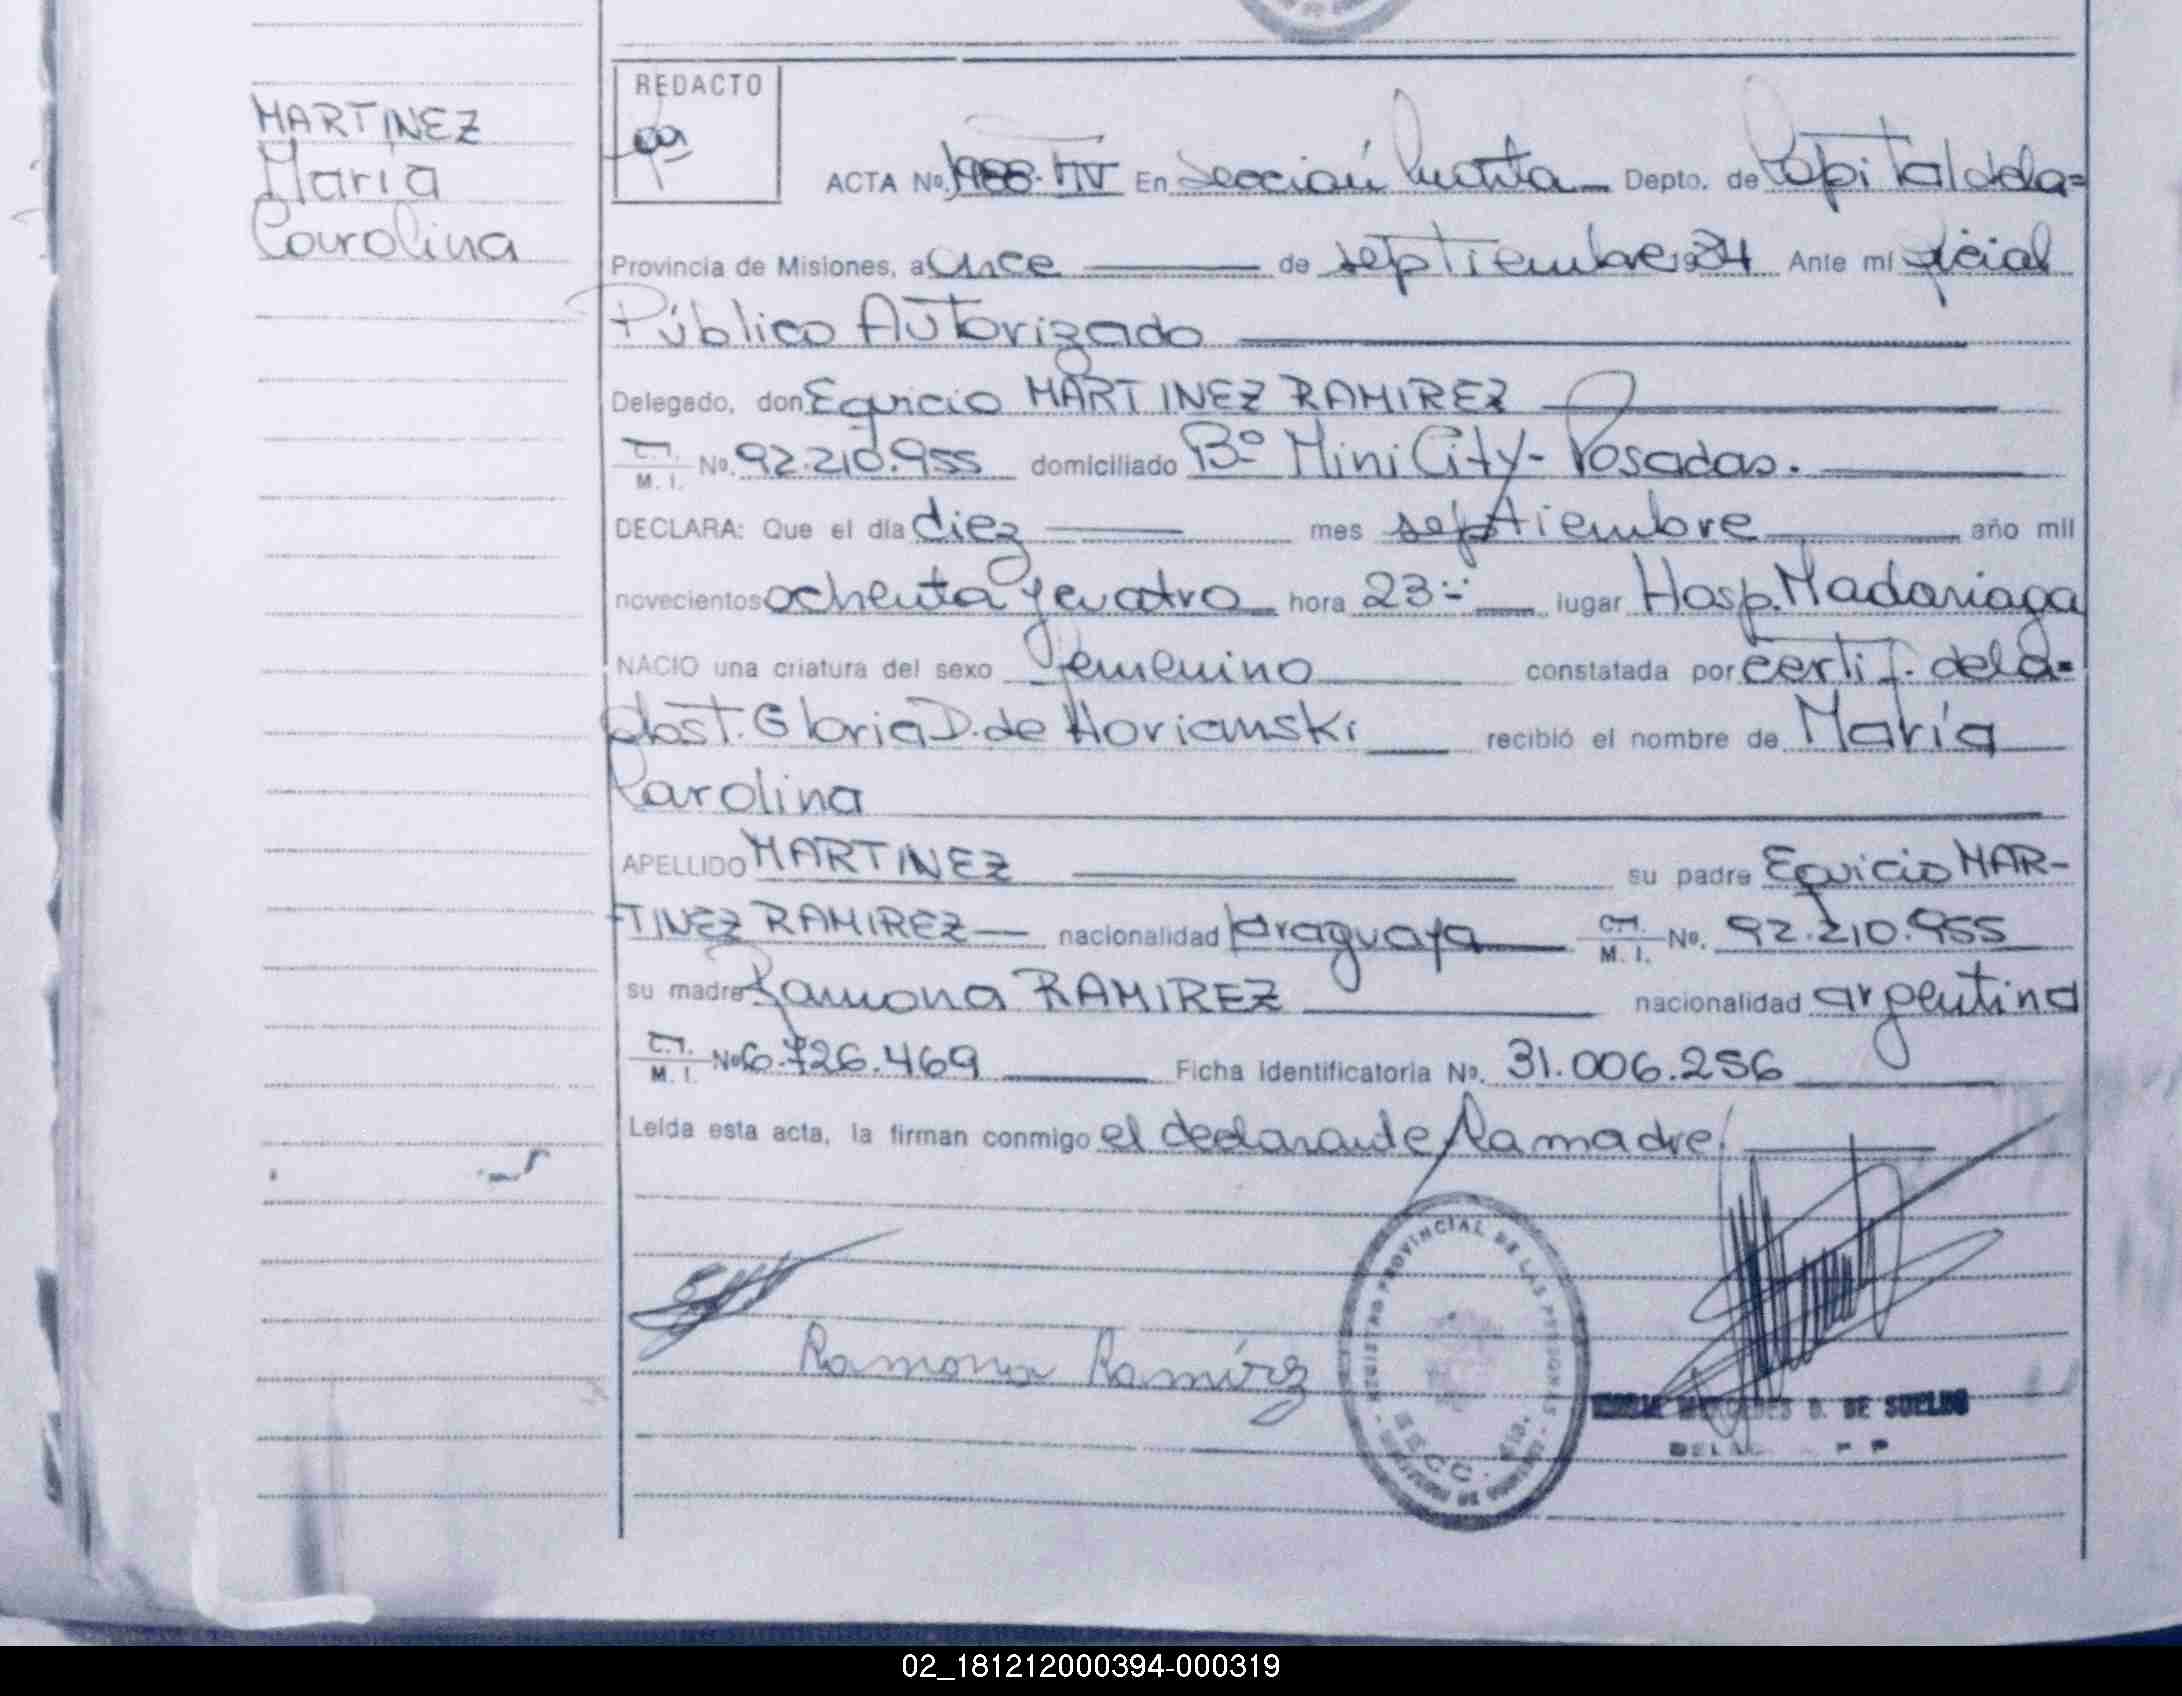 MARTINEZ
María
Carolina
REDACTO
ACTA No. 1988-TIV En Sección Cuarta Depto. de Capital de la=
Provincia de Misiones, a once de septiembre 1984 Ante mí oficial
Público Autorizado
Delegado, don Equicio MARTINEZ RAMIREZ
C.I.
M. I. No. 92.210.955 domiciliado Bº Mini City - Posadas.
DECLARA: Que el día diez mes septiembre año mil
novecientos ochenta y cuatro hora 23 lugar Hosp. Madariaga
NACIO una criatura del sexo femenino constatada por certif. de la=
obst. Gloria D. de Horianski recibió el nombre de María
Carolina
APELLIDO MARTINEZ su padre Equicio MAR-
TINEZ RAMIREZ nacionalidad paraguaya C.I. M. I. No. 92.210.955
su madre Ramona RAMIREZ nacionalidad argentina
C.I.
M. I. No 6.726.469 Ficha identificatoria No. 31.006.256
Leída esta acta, la firman conmigo el declarante y la madre.
Ramona Ramírez
REGISTRO PROVINCIAL DE LAS PERSONAS
DE SUELDO
02_181212000394-000319